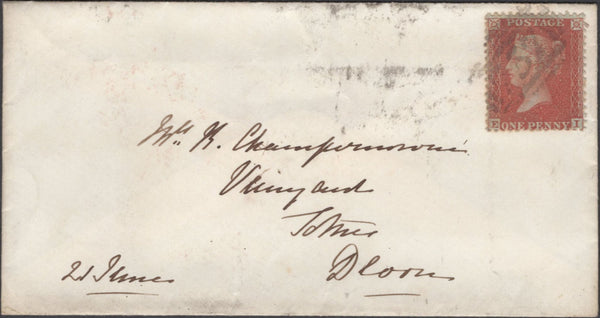 POSTAGE
E ONE PENNY I
W. K. Champernowne
Vineyard
Totnes
Devon
21 June